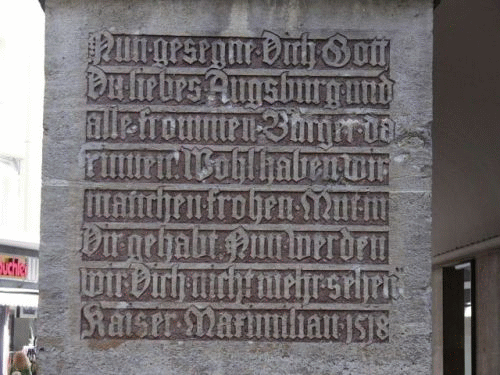 Nun·gesegne·Dich·Gott
Du·liebes·Augsburg·und
alle·frommen·Bürger·da
rinnen·Wohl·haben·wir·
manchen·frohen·Mut·in
Dir·gehabt·Nun·werden
wir·Dich·nicht·mehr·sehen
Kaiser·Maximilian·1518